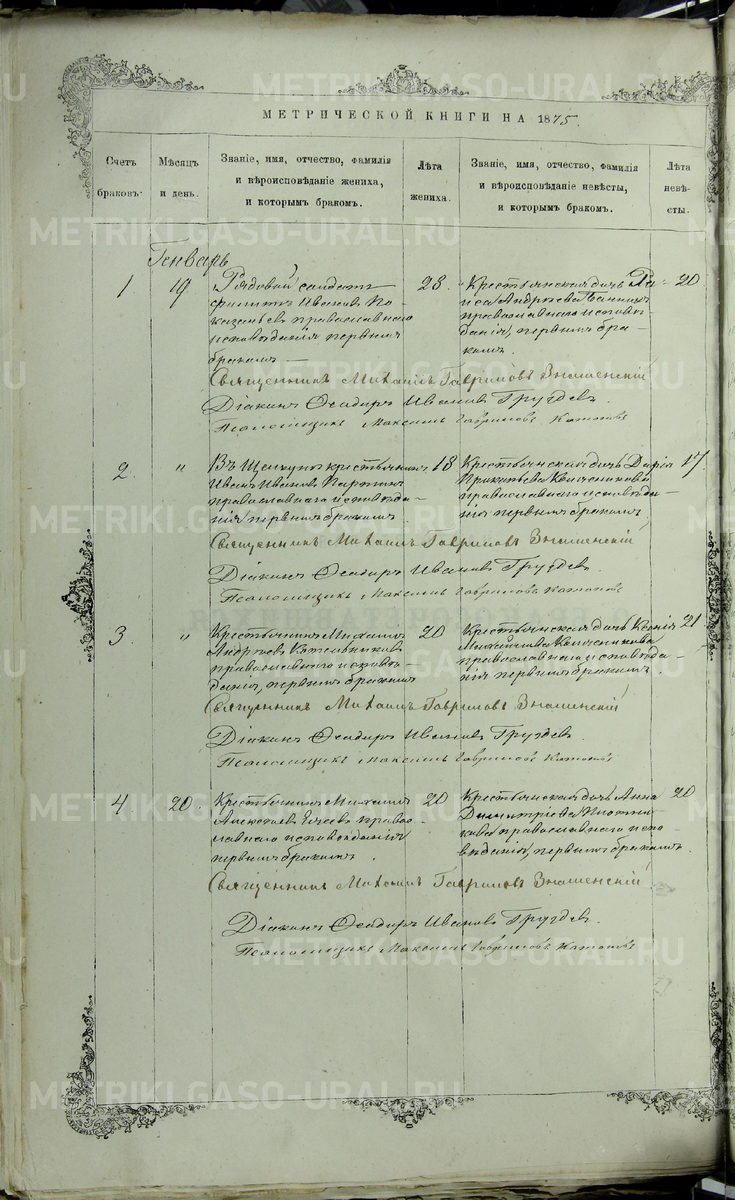 МЕТРИЧЕСКОЙ КНИГИ НА 1875.
Счетъ браковъ.
Мѣсяцъ и день.
Званіе, имя, отчество, фамилія
и вѣроисповѣданіе жениха,
и которымъ бракомъ.
Лѣта жениха.
Званіе, имя, отчество, фамилія
и вѣроисповѣданіе невѣсты,
и которымъ бракомъ.
Лѣта невѣ-
сты.
Генварь
1 19 Рядовой солдатъ
Филиппъ Ивановъ По-
казаньевъ православнаго
исповѣданія первымъ
бракомъ
28
Крестьянская дочь Ра-
иса Андреева
православнаго исповѣ-
данія, первымъ бра-
комъ.
20
Священникъ Михаилъ Гавриловъ Знаменскій
Діаконъ Ѳеодоръ Ивановъ Груздевъ.
Псаломщикъ Максимъ Гавриловъ
2 " крестьянинъ
Иванъ Ивановъ
православнаго исповѣда-
нія первымъ бракомъ
18
Крестьянская дочь Дарія
православнаго исповѣда-
нія первымъ бракомъ
17.
Священникъ Михаилъ Гавриловъ Знаменскій
Діаконъ Ѳеодоръ Ивановъ Груздевъ.
Псаломщикъ Максимъ Гавриловъ
3 " Крестьянинъ Михаилъ
Андреевъ Котельниковъ
православнаго исповѣ-
данія, первымъ бракомъ
20
Крестьянская дочь Ксенія
Михайлова
православнаго исповѣда-
нія первымъ бракомъ.
21
Священникъ Михаилъ Гавриловъ Знаменскій
Діаконъ Ѳеодоръ Ивановъ Груздевъ.
Псаломщикъ Максимъ Гавриловъ
4 20. Крестьянинъ Михаилъ
Алексѣевъ правос-
лавнаго исповѣданія
первымъ бракомъ.
20
Крестьянская дочь Анна
Димитріева Плотни-
кова православнаго испо-
вѣданія, первымъ бракомъ.
20
Священникъ Михаилъ Гавриловъ Знаменскій
Діаконъ Ѳеодоръ Ивановъ Груздевъ.
Псаломщикъ Максимъ Гавриловъ
METRIKI.GASO-URAL.RU